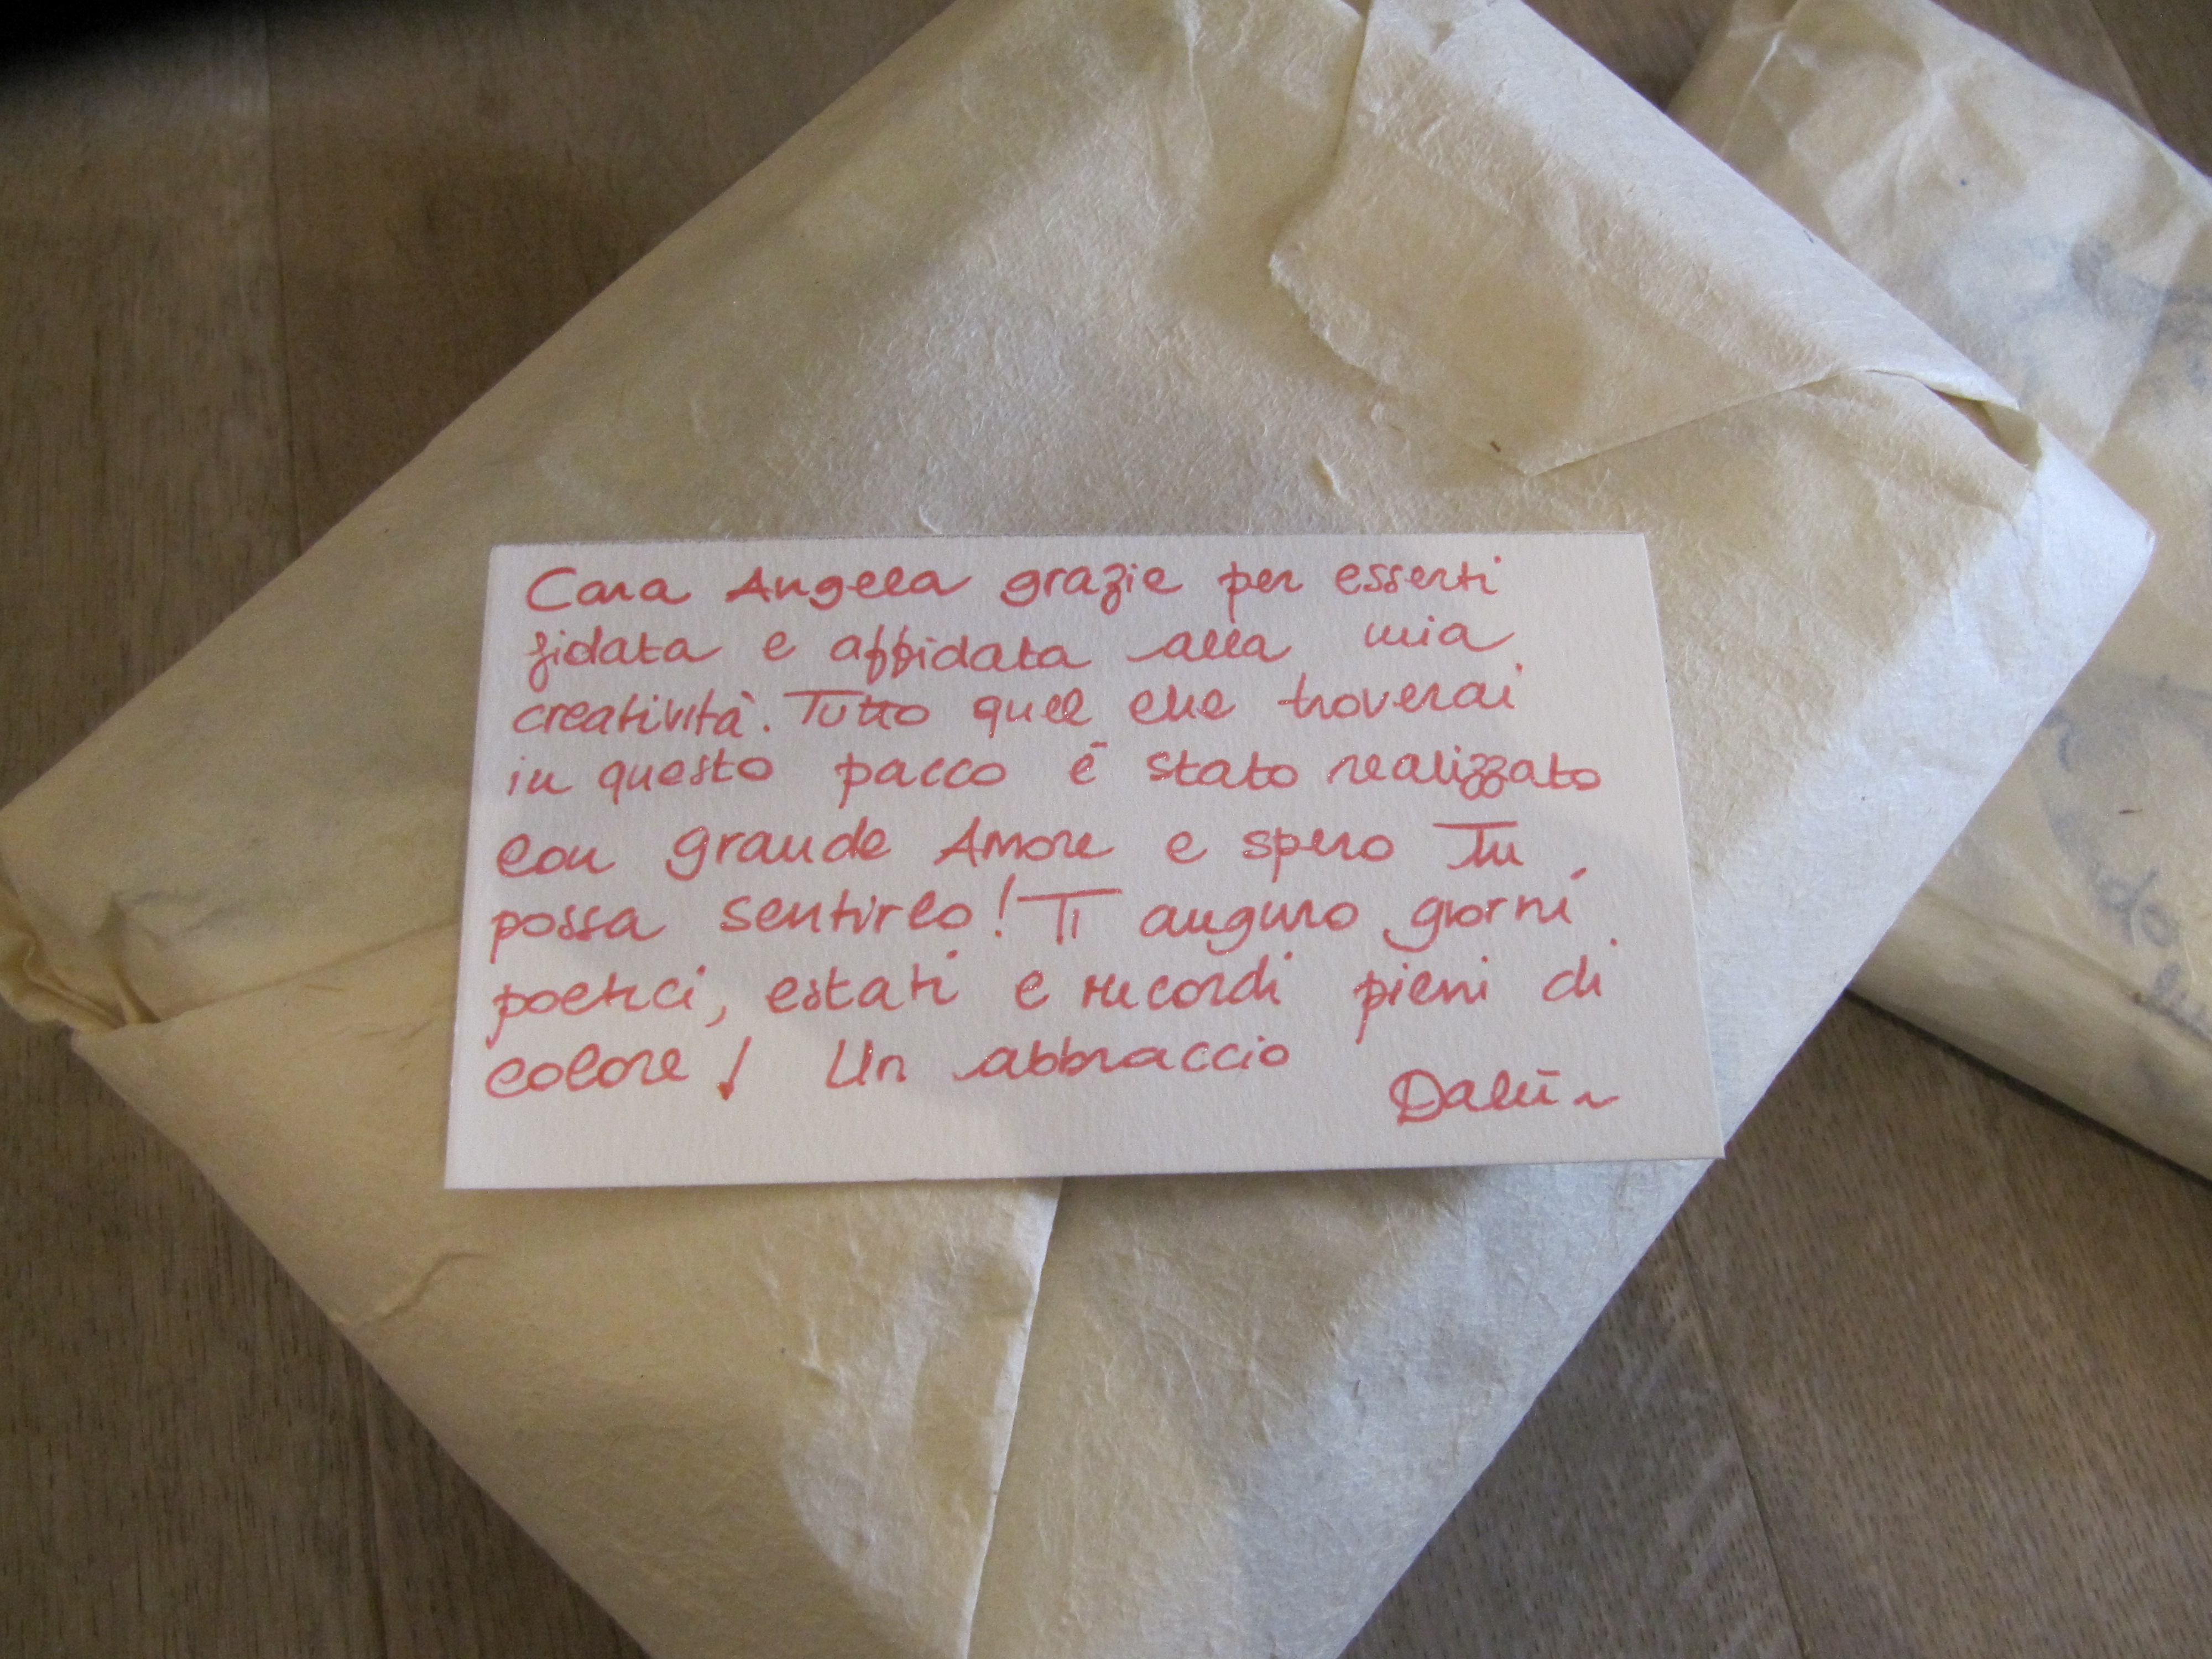 Cara Angela grazie per esserti
fidata e affidata alla mia
creatività. Tutto quel che troverai
in questo pacco è stato realizzato
con grande Amore e spero Tu
possa sentirlo! Ti auguro giorni
poetici, estati e ricordi pieni di
colore! Un abbraccio